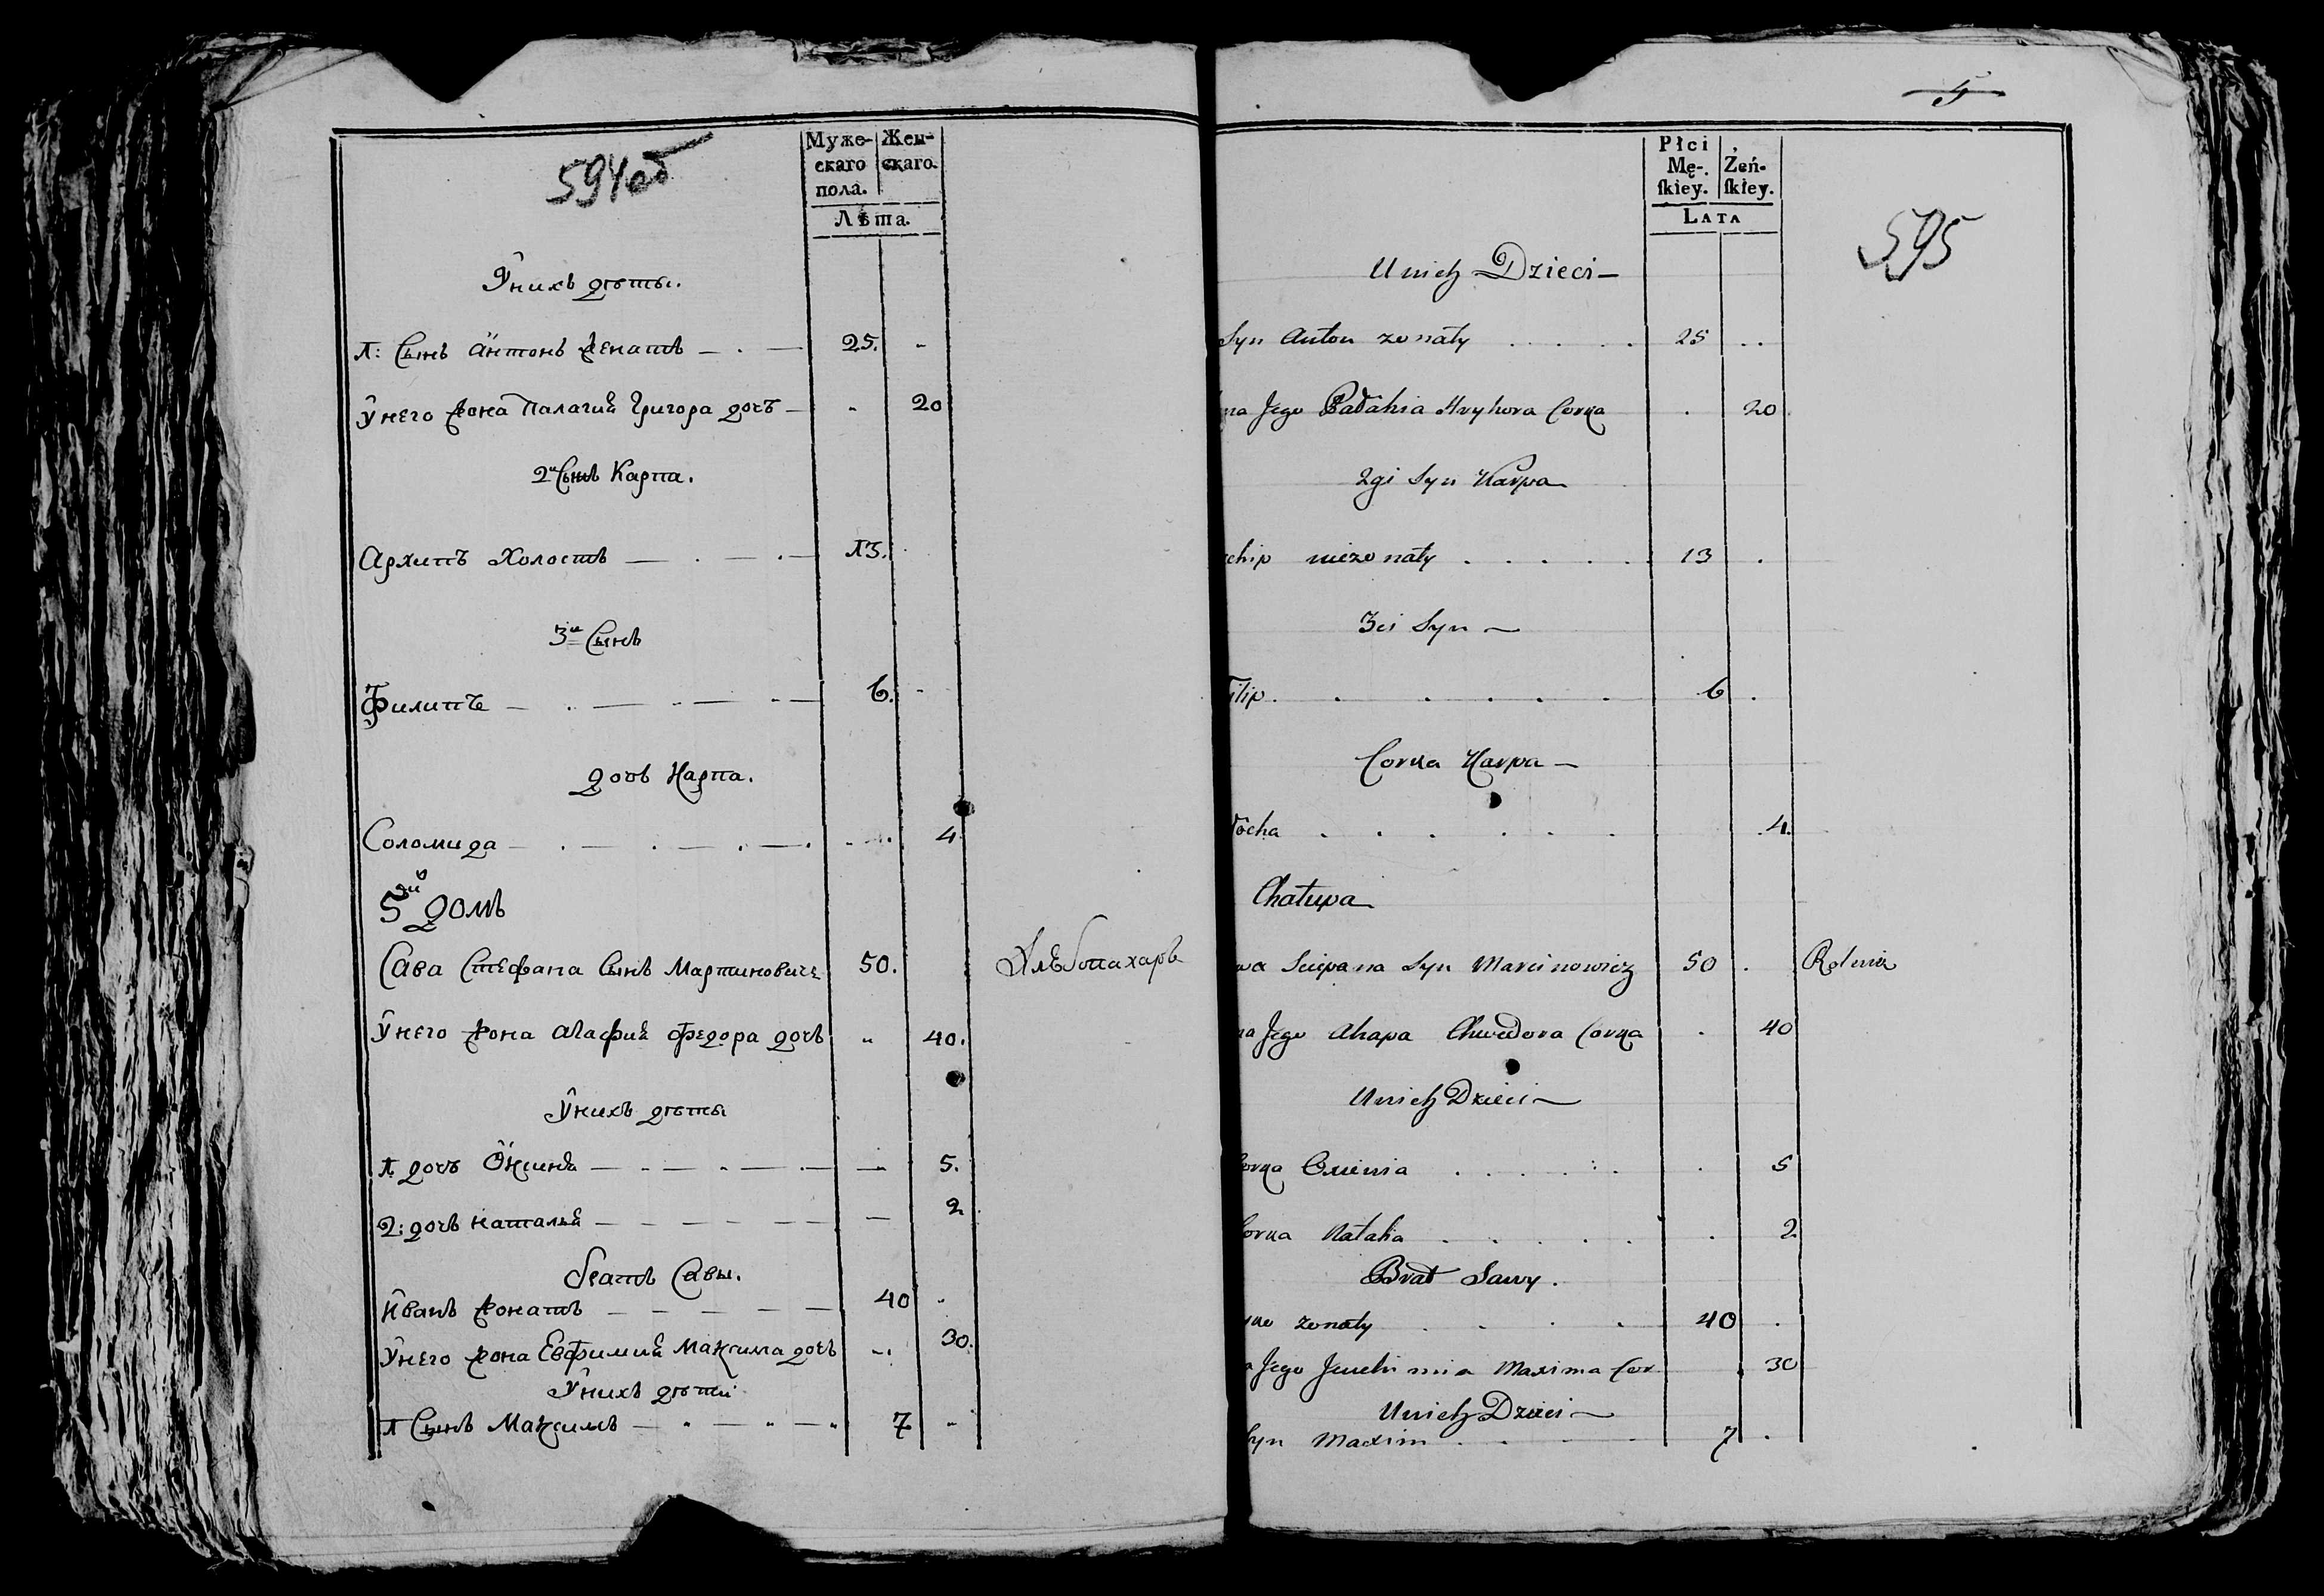 594об
Муже-
скаго
пола.
Жен-
скаго.
Лѣта.
У нихъ дѣти.
1: Сынъ Антонъ женатъ 25.
У него жона Палагия Григора дочъ 20
2й Сынъ Карпа.
Архипъ Холостъ 13.
3й Сынъ
Филипъ 6.
дочъ Карпа.
Соломида 4
5й домъ
Сава Стефана Сынъ Мартиновичъ 50. Хлѣбопахарь
У него жона Агафия Федора дочъ 40.
У нихъ дѣти
1 дочъ 5.
2: дочъ Наталья 2
братъ Савы.
Иванъ жонатъ 40
У него жона Евфимия Максима дочъ 30.
У нихъ дѣти
1 Сынъ Максимъ 7
5
595
Płci
Mę-
ſkiey.
Żeń-
ſkiey.
LATA
U nich Dzieci
Syn Anton zonaty 25
na Jego Pałahia Hryhora Corka 20
2gi Syn Karpa
chip niezonaty 13
3ci Syn
ilip 6
Corka Karpa
docha 4.
Chałupa
wa Sciepana Syn Marcinowicz 50 Rolnik
na Jego Ahapa Chwedora Corka 40
U nich Dzieci
orka 5
orka Natalia 2
Brat Sawy.
zonaty 40
Jego Jeuchimia Maxima Cor 30
U nich Dzieci
Syn Maxim 7